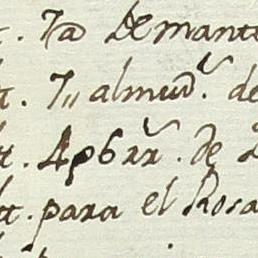 It. 7a Demante
It. 7,, almud.s de
It. 4p6rr.s de
It. para el Rosa